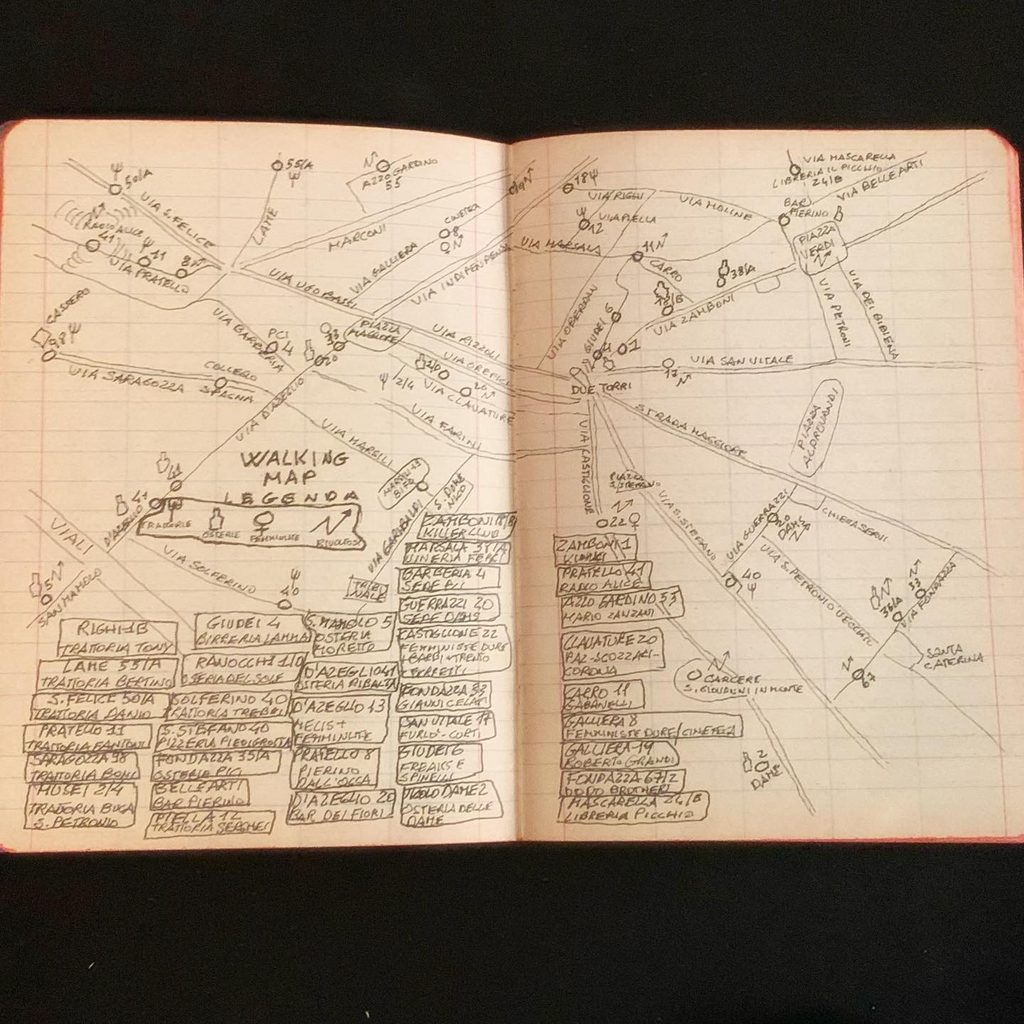 50/A
VIA S. FELICE
RADIO ALICE
41
11
8
VIA PRATELLO
55/A
LAME
AZZO GARDINO
55
MARCONI
CINETECA
8
VIA GALLIERA
VIA INDIPENDENZA
VIA UGO BASSI
CASSERO
98
VIA SARAGOZZA
VIA BARBERIA
PCI
4
COLLEGIO
SPAGNA
PIAZZA
MAGGIORE
VIA RIZZOLI
VIA OREFICI
VIA CLAVATURE
2/4
VIA FARINI
VIA D'AZEGLIO
VIA MARSILI
WALKING
MAP
LEGENDA
TRATTORIE
OSTERIE
FEMMINISTE
41
D'AZEGLIO
VIALI
SAN MAMOLO
5
VIA SOLFERINO
40
VIA GARIBALDI
S. DOME
NICO
TRIBU
NALE
RIGHI 1B
TRATTORIA TONY
LAME 55/A
TRATTORIA BERTINO
S. FELICE 50/A
TRATTORIA DANIO
PRATELLO 11
TRATTORIA FANTONI
SARAGOZZA 98
TRATTORIA BONI
MUSEI 2/4
TRATTORIA BUCA
S. PETRONIO
GIUDEI 4
BIRRERIA LAMMA
RANOCCHI 1/D
OSTERIA DEL SOLE
SOLFERINO 40
TRATTORIA TREBBI
S. STEFANO 40
PIZZERIA PIEDIGROTTA
FONDAZZA 35/A
OSTERIA PIO
BELLE ARTI
BAR PIERINO
PIELLA 12
TRATTORIA SERGHEI
S. MAMOLO 5
OSTERIA
MORETTO
D'AZEGLIO 41
OSTERIA RIBALTA
D'AZEGLIO 13
FEMMINISTE
PRATELLO 8
PIERINO
DALL'OCCA
D'AZEGLIO 20
BAR DEI FIORI
ZAMBONI 18/B
KILLER CLUB
MARSALA 35/A
VINERIA
BARBERIA 4
SEDE PCI
GUERRAZZI 20
SEDE DAMS
CASTIGLIONE 22
FEMMINISTE DURE
FONDAZZA 33
GIANNI CELATI
SAN VITALE 17
FURLO-CURTI
GIUDEI 6
FREAKS E
SPINELLI
VICOLO DAME 2
OSTERIA DELLE
DAME
18
VIA RIGHI
VIA PIELLA
12
VIA MOLINE
VIA MARSALA
VIA MASCARELLA
LIBRERIA IL PICCHIO
24/B
VIA BELLE ARTI
BAR
PIERINO
PIAZZA
VERDI
11
CARRO
38/A
18/B
VIA OBERDAN
GIUDEI
6
4
1
VIA ZAMBONI
VIA PETRONI
VIA DEI BIBIENA
VIA SAN VITALE
17
DUE TORRI
STRADA MAGGIORE
PIAZZA
ALDROVANDI
VIA CASTIGLIONE
PIAZZA
S. STEFANO
22
VIA S. STEFANO
VIA GUERRAZZI
20
DAMS
CHIESA SERVI
40
VIA S. PETRONIO VECCHIO
35/A
33
VIA FONDAZZA
SANTA
CATERINA
67
CARCERE
S. GIOVANNI IN MONTE
2
DAME
ZAMBONI 1
PRATELLO 41
RADIO ALICE
AZZO GARDINO 53
MARIO ZANZANI
CLAVATURE 20
PAZ-SCOZZARI-
CORONA
CARRO 11
GABANELLI
GALLIERA 8
FEMMINISTE DURE/CINETECA
GALLIERA 19
ROBERTO GRANDI
FONDAZZA 67/2
DODO BROTHERS
MASCARELLA 24/B
LIBRERIA PICCHIO